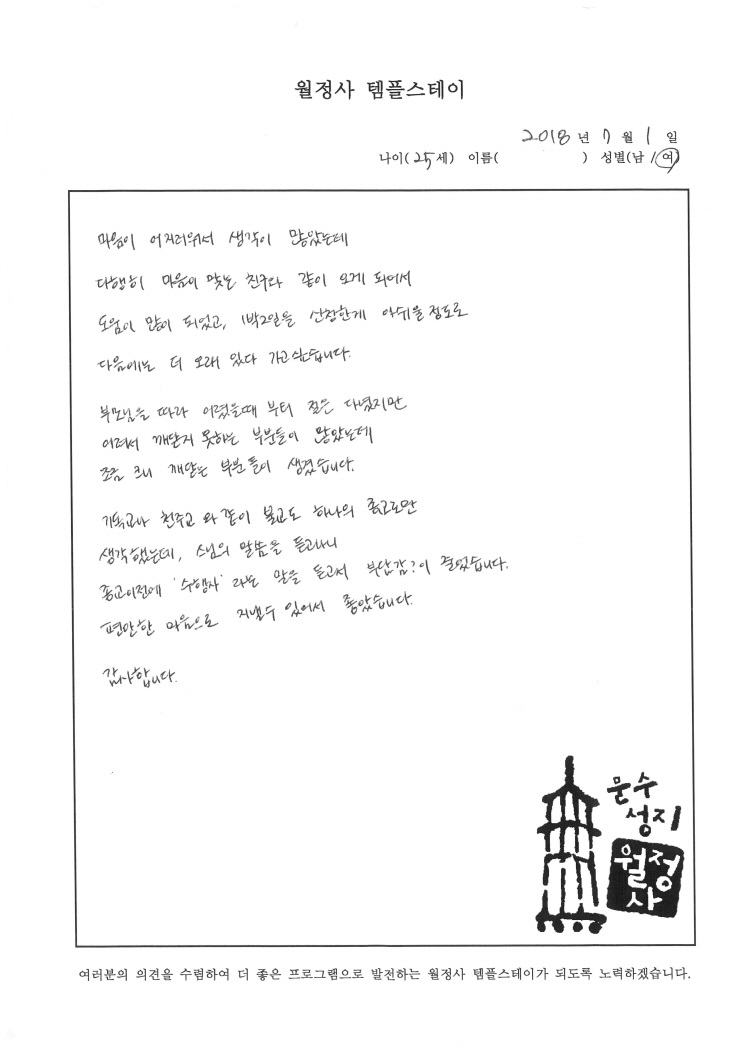 월정사 템플스테이
2018 년 7 월 1 일
나이( 25 세) 이름( ) 성별(남 / 여)
마음이 어지러워서 생각이 많았는데
다행히 마음이 맞는 친구와 같이 오게 되어서
도움이 많이 되었고, 1박2일을 신청한게 아쉬울 정도로
다음에는 더 오래 있다 가고싶습니다.
부모님을 따라 어렸을때 부터 절은 다녔지만
어려서 깨닫지 못하는 부분들이 많았는데
조금 크니 깨닫는 부분들이 생겼습니다.
기독교나 천주교 와 같이 불교도 하나의 종교로만
생각했는데, 스님의 말씀을 듣고나니
종교이전에 '수행자' 라는 말을 듣고서 부담감?이 줄었습니다.
편안한 마음으로 지낼수 있어서 좋았습니다.
감사합니다.
문수
성지
월정
사
여러분의 의견을 수렴하여 더 좋은 프로그램으로 발전하는 월정사 템플스테이가 되도록 노력하겠습니다.